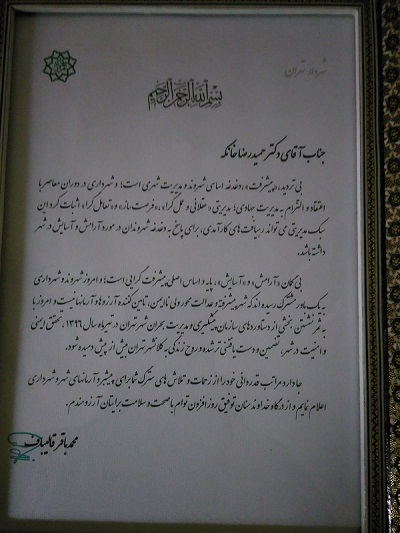 شهردار تهران
بسم الله الرحمن الرحیم
جناب آقای دکتر حمیدرضا خانکه
بی تردید، «پیشرفت»، دغدغه اساسی شهروند و مدیریت شهری است؛ و شهرداری در دوران معاصر با
اعتقاد و التزام به مدیریت جهادی؛ مدیریتی «عقلانی و عمل گرا»، «فرصت ساز» و «تعامل گرا» اثبات کرد این
سبک مدیریتی می تواند رهیافت های کارآمدی، برای پاسخ به دغدغه شهروندان در حوزه آرامش و آسایش در شهر
داشته باشد.
بی گمان «آرامش» و «آسایش»، پایه و اساس اصلی پیشرفت گرایی است؛ و امروز شهروند و شهرداری
به یک باور مشترک رسیده اند که شهر پیشرفته و عدالت محور ولی ناایمن، تامین کننده آرزوها و آرمانها نیست و امروز با
به ثمر نشستن بخشی از دستاوردهای سازمان پیشگیری و مدیریت بحران شهر تهران در تیرماه سال ۱۳۹۶، تحقق ایمنی
و امنیت در شهر، تضمین و دست یافتنی تر شده و روح زندگی به کلانشهر تهران بیش از پیش دمیده شود.
جا دارد مراتب قدردانی خود را از زحمات و تلاش های سترگ شما برای پیشبرد آرمانهای شهر و شهرداری
اعلام نمایم و از درگاه خداوند منان توفیق روزافزون توام با صحت و سلامت برایتان آرزومندم.
محمدباقر قالیباف